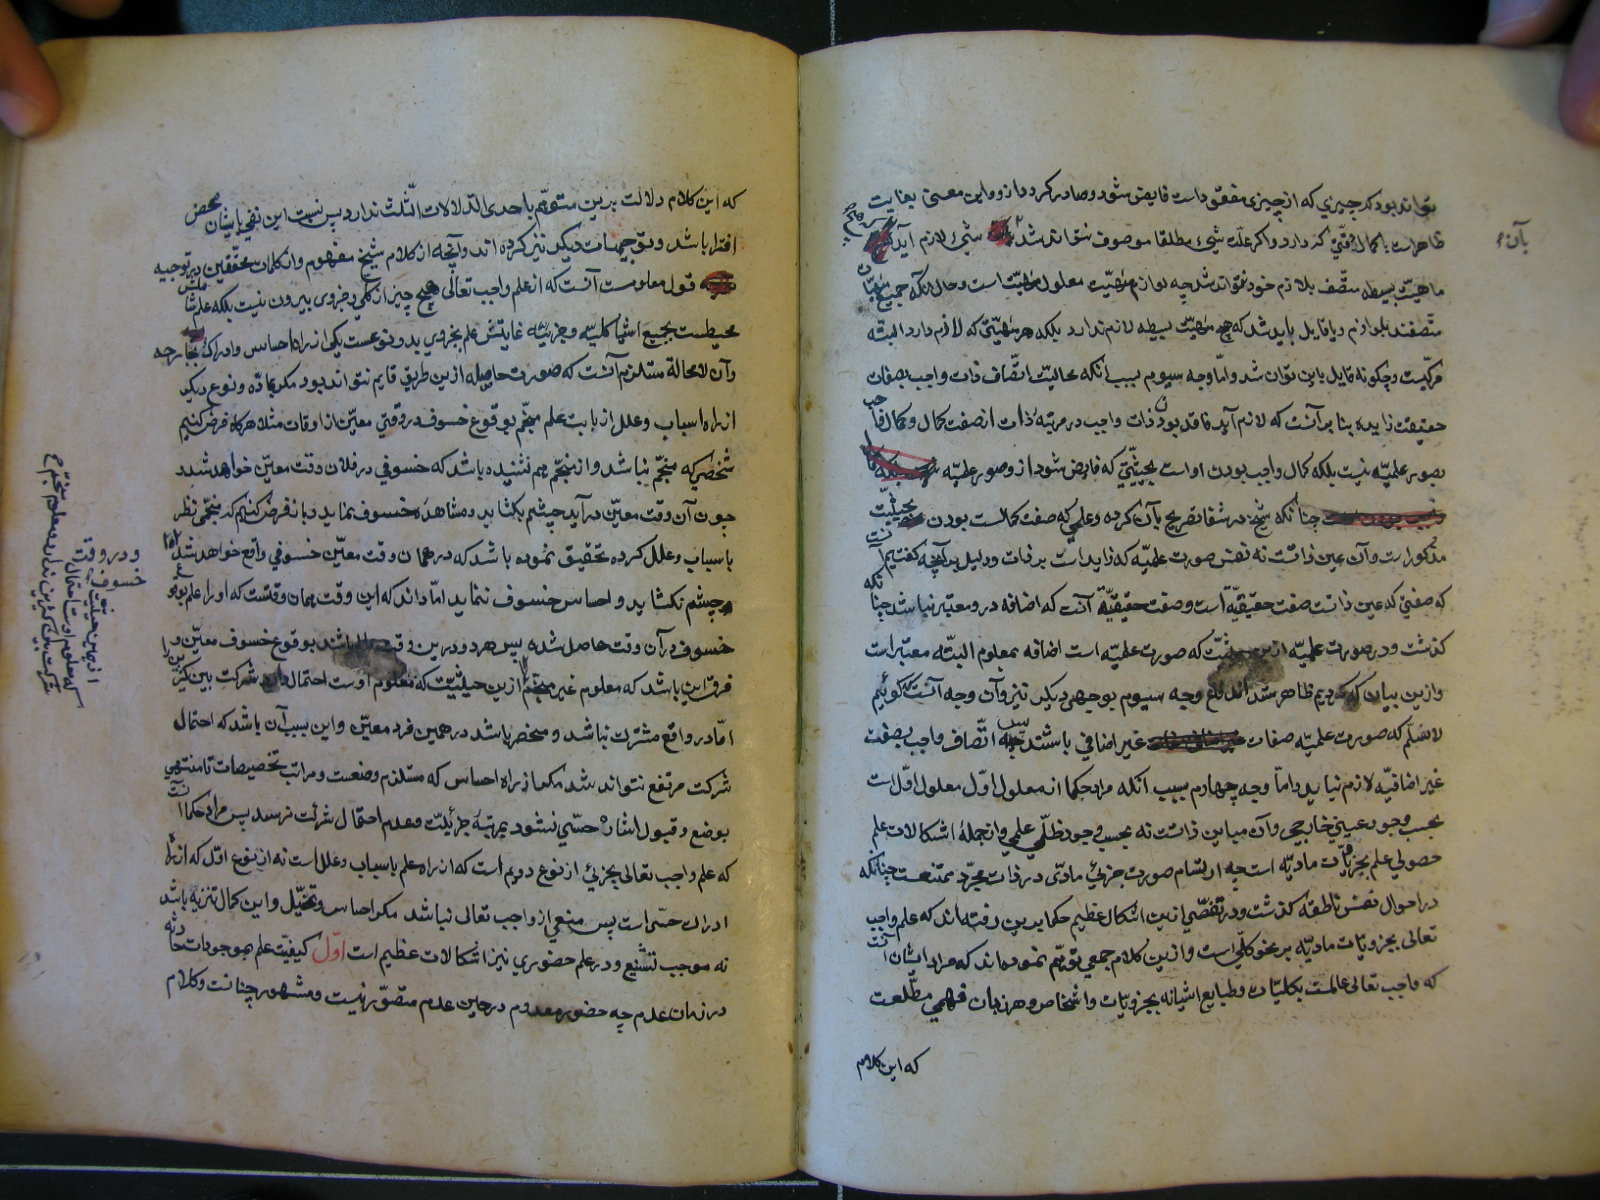 تواند بود که چیزی که از چیزی مفقق داست فایض شود و صادر کردد از و و این معنی بغایت
ظاهر است با کمال دقتی که دارد و اکر علت شیء مطلقا موصوف نتواند شد شیء لازم آید که هیچ
بآن
ماهیت بسیطه متصف بلازم خود نتواند شد چه لوازم ماهیت معلول ماهیت است و حال آنکه جمیع ماهیتات
متصفند بلوازم و یا قایل باید شد که هیچ ماهیت بسیطه لازم ندارد بلکه هر ماهیتی که لازم دارد البته
مرکبست و چکونه قایل باین توان شد و اما وجه سیوم بسبب آنکه محالیت اتصاف ذات واجب بصفات
حقیقت زایده بنا بر آنست که لازم آید فاقد بودن ذات واجب در مرتبه ذات از صفت کمال و کمال واجب
بصور علمیه نیست بلکه کمال واجب بودن او است بحیثیتی که فایض شود از و صور علمیه
چنانکه شیخ در شفا تصریح بآن کرده و علمی که صفت کمالست بودن بحیثیت
مذکور است و آن عین ذاتست نه نفس صورت علمیه که زاید است بر ذات و دلیل بر آنچه کفتیم آنست
که صفتی که عین ذاتست صفت حقیقیة است و صفت حقیقیة آنست که اضافه در و معتبر نباشد چنانکه
کذشت و در صورت علمیه از حیثیت که صورت علمیه است اضافه بمعلوم البته معتبر است
و ازین بیان که کردیم ظاهر شد اندفاع وجه سیوم بوجهی دیکر نیز و آن وجه آنست که کوئیم
لا نسلم که صورت علمیه صفات غیر اضافی باشند پس اتصاف واجب بصفت
غیر اضافیه لازم نیاید و اما وجه چهارم بسبب آنکه مراد حکما از معلول اول معلول اول است
بحسب وجود عینی خارجی و آن مباین ذاتست نه بحسب وجود ظلی علمی و از جملهٔ اشکالات علم
حصولی علم بجزئیات مادیه است چه ارتسام صورت جزئی مادی در ذات مجرد ممتنعست چنانکه
در احوال نفس ناطقه کذشت و در تفصی ازین اشکال عظیم حکما بدین رفته اند که علم واجب
تعالی بجزویات مادیه بر نحو کلی است و ازین کلام جمعی توهم نموده اند که مراد ایشان آنست
که واجب تعالی عالمست بکلیات و طبایع اشیا نه بجزویات و اشخاص و هر زبان فهمی مطلعست
که این کلام
که این کلام دلالت برین متوهم باحدی الدلالات الثلث ندارد پس نسبت این نفی بایشان محض
افترا باشد و بوجهات دیکر نیز کرده اند و آنچه از کلام شیخ مفهوم و از کلمات محققین در توجیه
قول معلومست آنست که از علم واجب تعالی هیچ چیز از کلی و جزوی بیرون نیست بلکه علمش
محیطست بجمیع اشیا کلیه و جزئیه غایتش علم بجزوی بدو نوعست یکی از راه احساس و ادراک بخارجه
و آن لا محالة مستلزم آنست که صورت حاصله ازین طریق قایم نتواند بود مکر بماده و نوع دیکر
از راه اسباب و علل از بابت علم منجم بوقوع خسوف در وقتی معین از اوقات مثلا هرکاه فرض کنیم
شخصی که منجم نباشد و از منجم هم نشنیده باشد که خسوفی در فلان وقت معین خواهد شد
چون آن وقت معین در آید چشم بکشاید و مشاهدهٔ خسوف نماید و باز فرض کنیم که منجمی نظر
باسباب و علل کرده تحقیق نموده باشد که در همان وقت معین خسوفی واقع خواهد شد اما
چشم نکشاید و احساس خسوف ننماید اما داند که این وقت همان وقتست که او را علم بوقوع
خسوف در آن وقت حاصل شده پس هر دو درین وقت عالم باشند بوقوع خسوف معین و
فرق این باشد که معلوم غیر منجم ازین حیثیت که معلوم اوست احتمال شرکت بین کثیرین
اما در واقع مشترک نباشد و منحصر باشد در همین فرد معین و این بسبب آن باشد که احتمال
شرکت مرتفع نتواند شد مکر از راه احساس که مستلزم وضعست و مراتب تخصیصات تا منتهی
بوضع و قبول اشاره حسی نشود بمرتبهٔ جزئیت و عدم احتمال شرکت نرسد پس مراد حکما آنست
که علم واجب تعالی بجزئی از نوع دویم است که از راه علم باسباب و علل است نه از نوع اول که از راه
ادراک حسی است پس منعی از واجب تعالی نباشد مکر احساس و تخیل و این کمال تنزیه باشد
نه موجب تشنیع و در علم حضوری نیز اشکالات عظیم است اول کیفیت علم بموجودات حادثه
در زمان عدم چه حضور معدوم در حین عدم متصور نیست و مشهور چنانست و کلام
و در وقت
خسوف
ازین حیثیت
که معلوم اوست احتمال
شرکت بین کثیرین ندارد و معلوم منجم